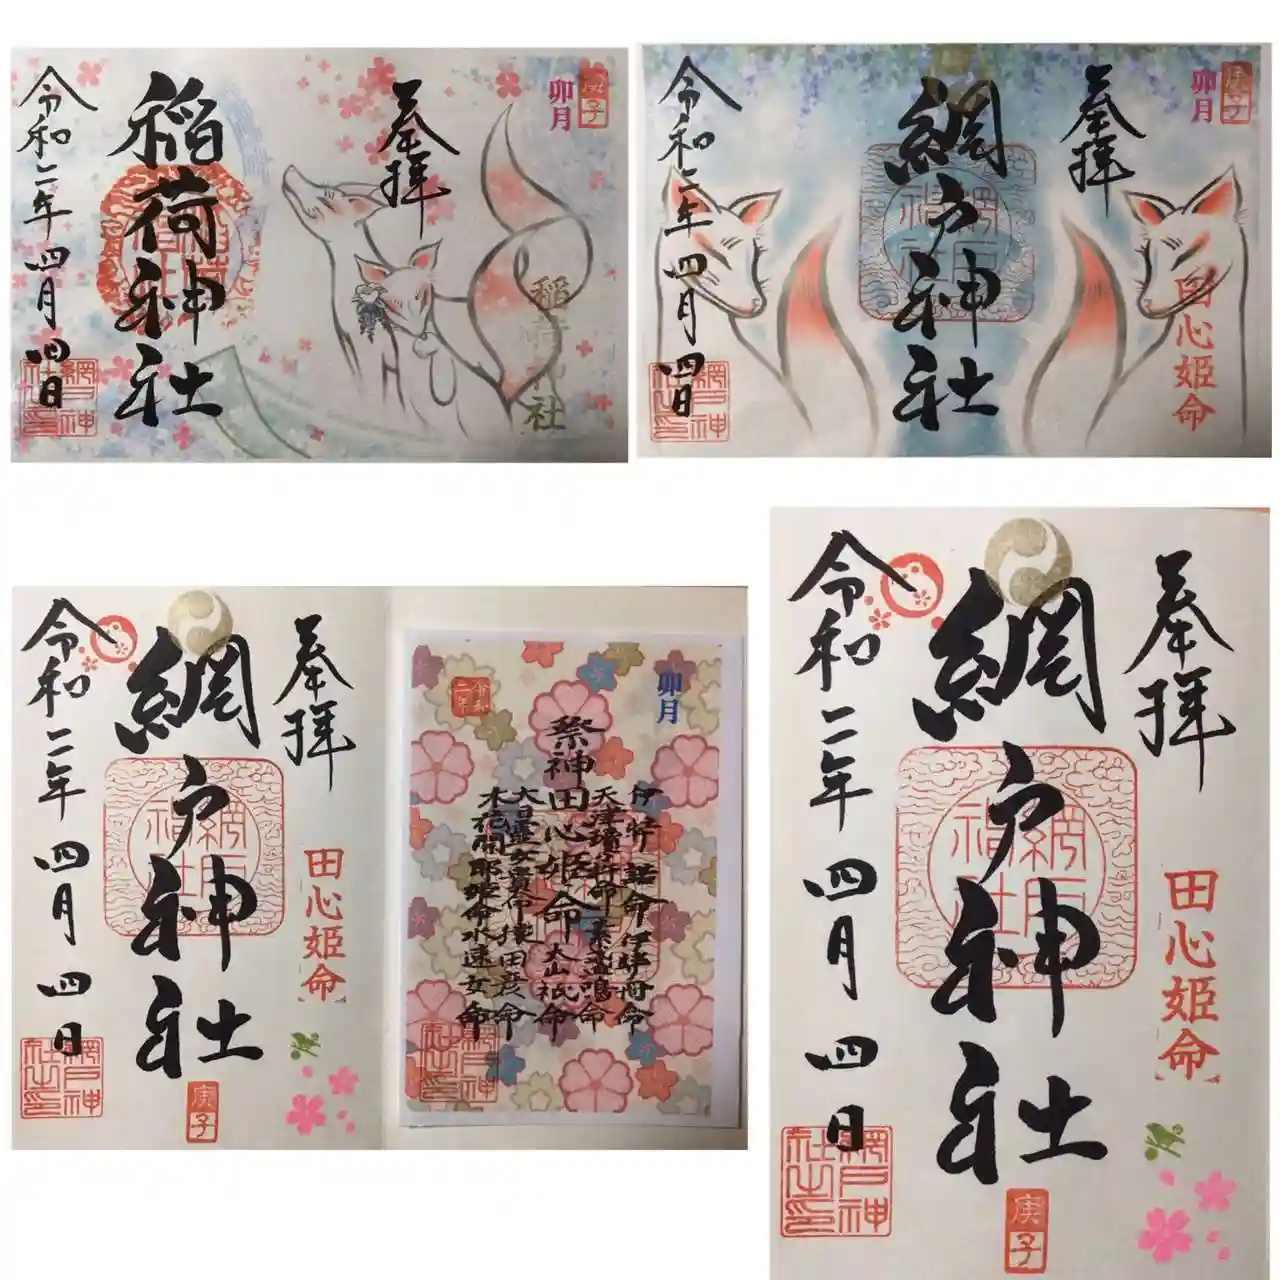 卯月
庚子
奉拝
稲荷神社
令和二年四月四日
稲荷神社
網戸神社之印
卯月
庚子
奉拝
田心姫命
網戸神社
令和二年四月四日
網戸神社
網戸神社之印
奉拝
田心姫命
網戸神社
令和二年四月四日
網戸神社
庚子
網戸神社之印
卯月
令和二年
祭神田心姫命
伊弉諾命 伊弉冉命
素盞嗚命
大山祇命
大日孁女貴命 猿田彦命
木花開耶姫命 水速女命
網戸神社之印
奉拝
田心姫命
網戸神社
令和二年四月四日
網戸神社
庚子
網戸神社之印